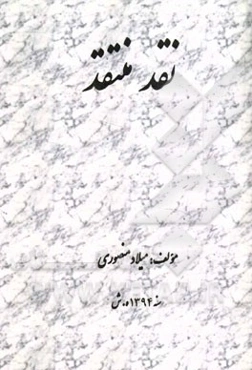 نقد منتقد
مؤلف: میلاد منصوری
سنه ۱۳۹۴ ه.ش